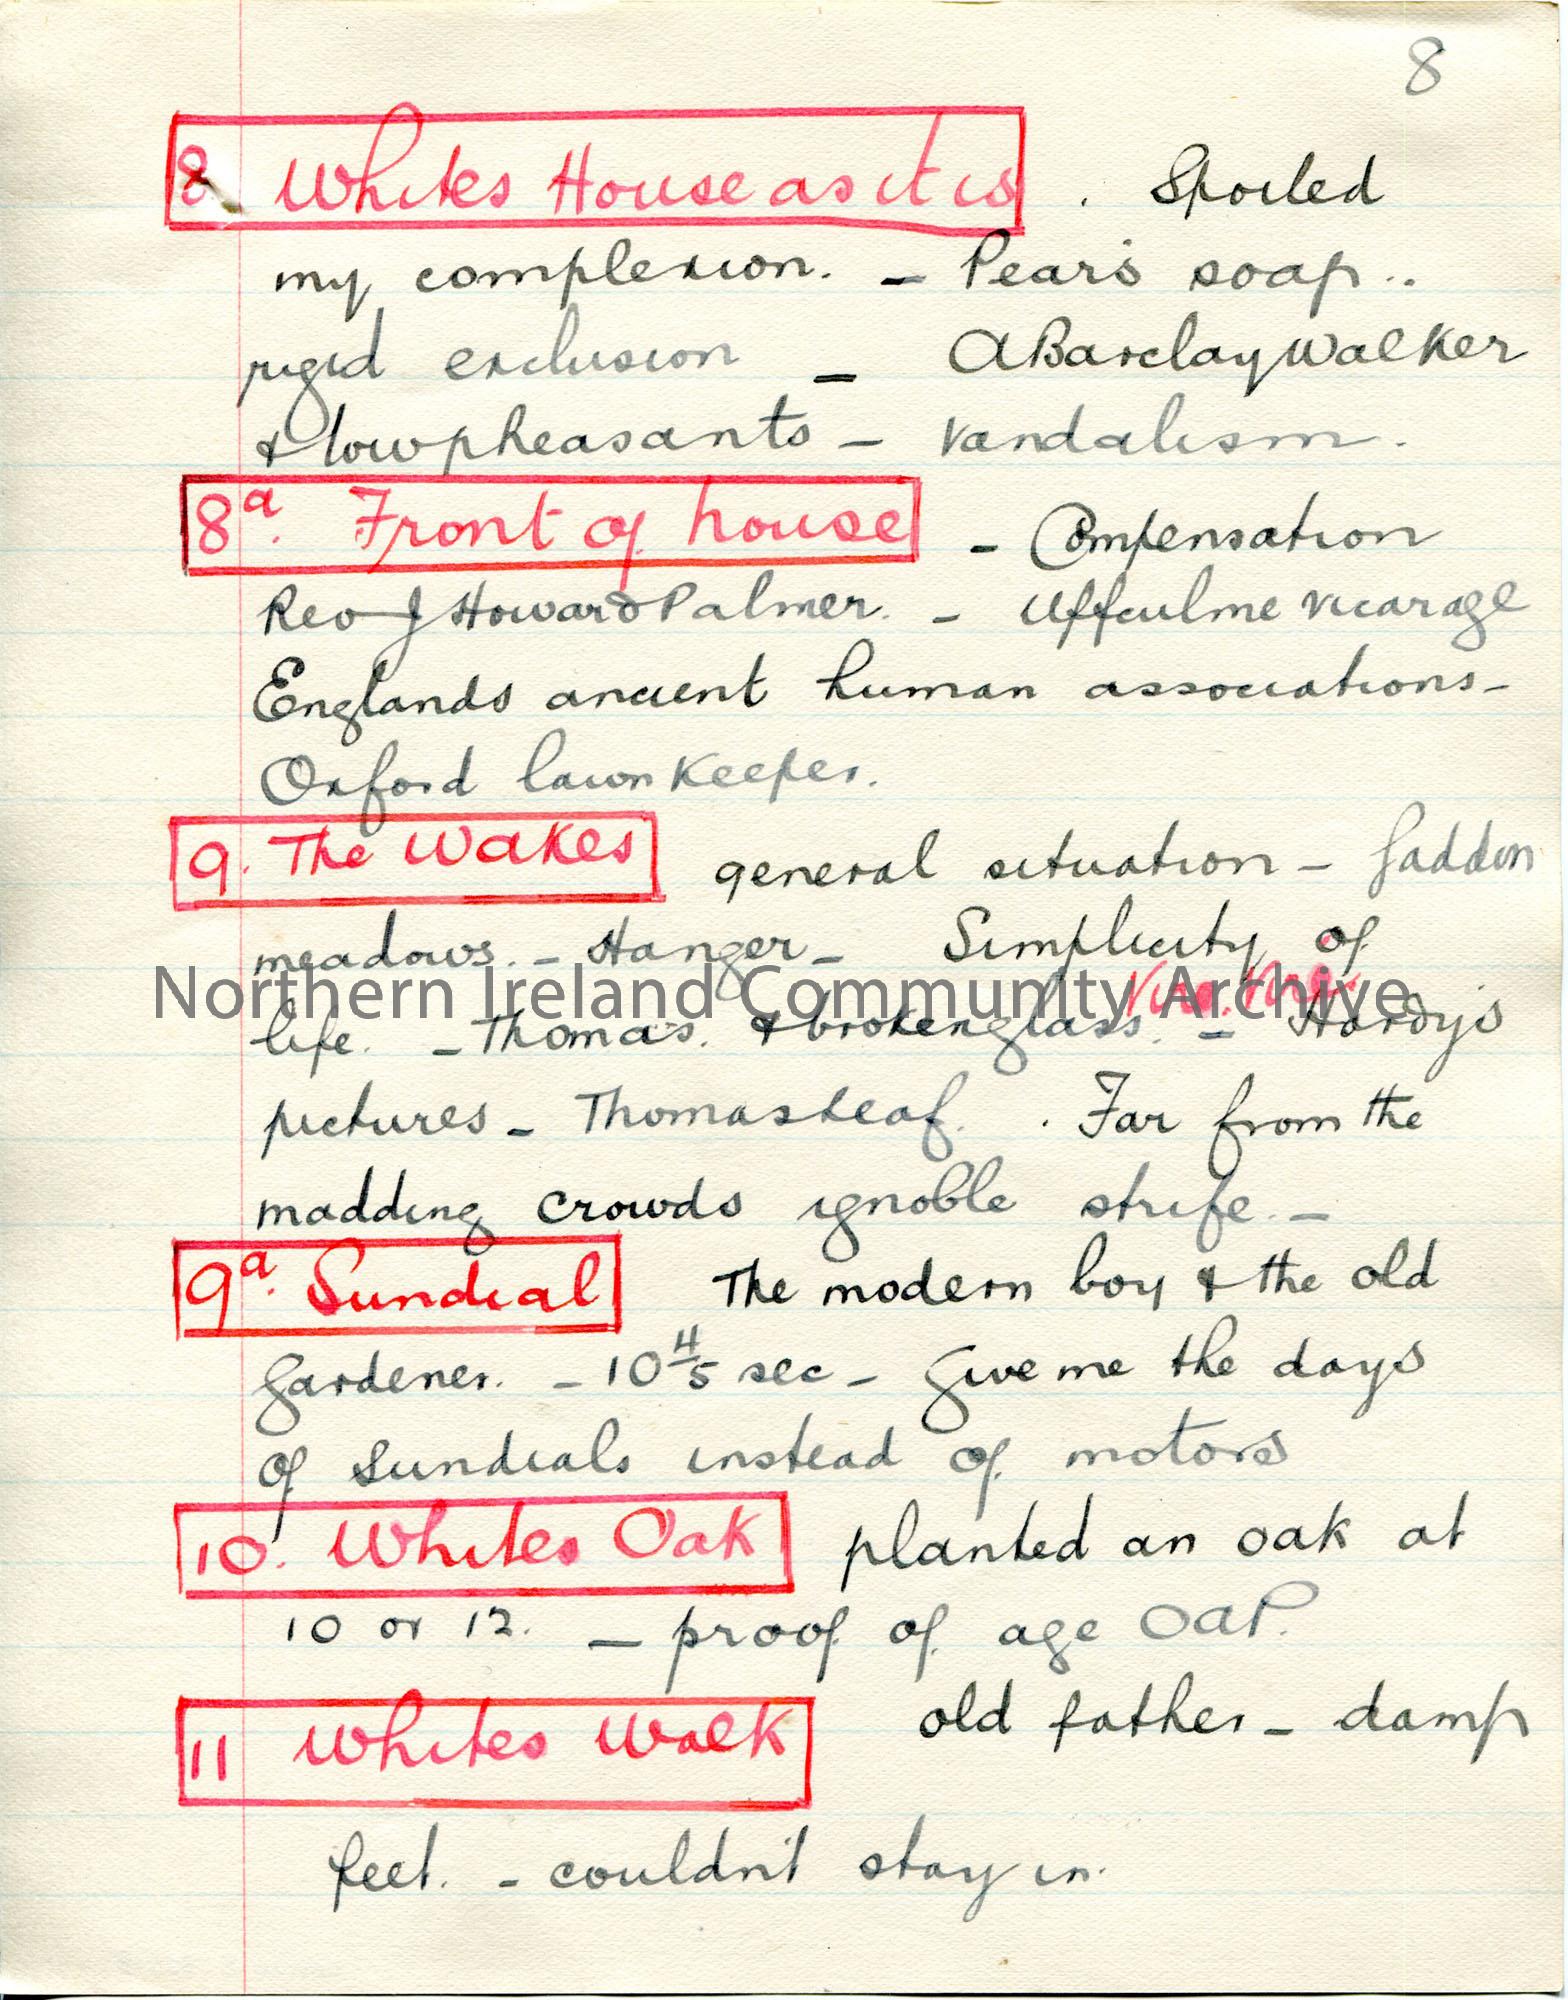 8
8. Whites House as it is . Spoiled
my complexion. – Pear's soap..
rigid exclusion – A Barclay Walker
& low pheasants – Vandalism.
8a. Front of house – Compensation
Rev J Howard Palmer. – Uffculme Vicarage
Englands ancient human associations –
Oxford lawn Keeper.
9. The Wakes general situation –
meadows. – Hanger – Simplicity of
life. – Thomas. & broken glass. – Hardy's
pictures – Thomas Leaf. . Far from the
madding crowds ignoble strife. –
9a. Sundial The modern boy & the old
gardener. – 10 4/5 sec – Give me the days
of Sundials instead of motors
10. Whites Oak planted an oak at
10 or 12. – proof of age OAP.
11 Whites Walk old father – damp
feet. – couldn't stay in.
Northern Ireland Community Archive